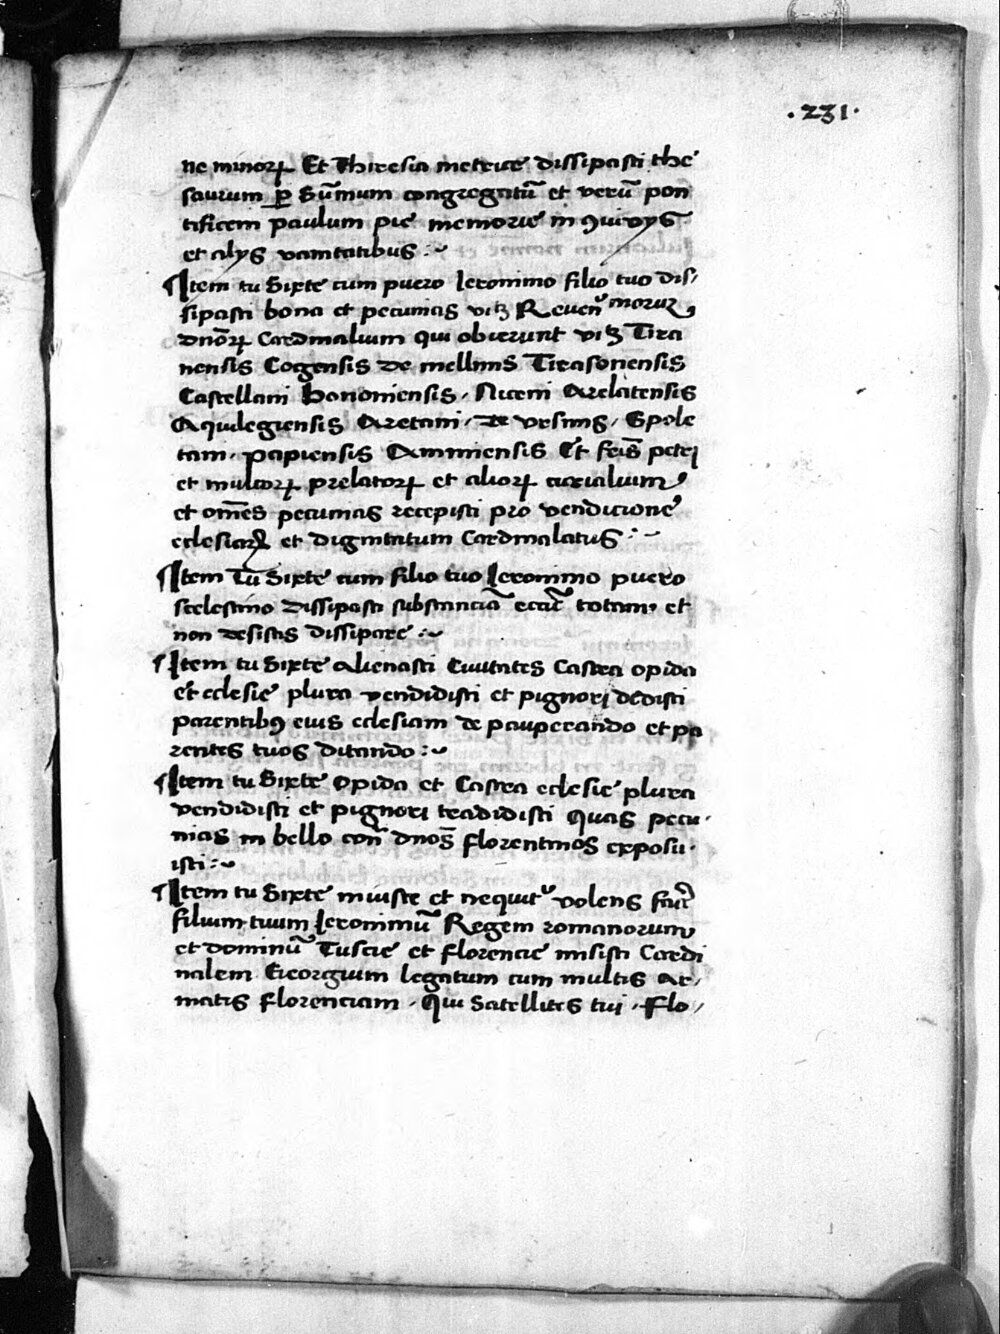 .231.
ne minorꝝ Et Thiresia metrice dissipasti the
saurum ꝑ Sūmum congregatū et verū pon
tificem paulum pie memorie in
et alys vanitatibus :~
¶Item tu Sixte cum puero Ieronimo filio tuo dis/
sipasti bona et pecunias viꝫ Reueñ moruꝝ
dnōꝝ Cardinalium qui obierunt viꝫ Tira
nensis Cogensis De mellinis Tirasonensis
Castellani bononiensis . Niceni Arelatensis
Aquilegiensis Aretani . De vrsinis . Spole
tani . papiensis Amminensis Et petri
et multorꝝ prelatorꝝ et aliorꝝ curialium
et om̄es pecunias recepisti pro vendicione
eclesiarꝝ et dignitatum Cardinalatus :~
¶Item Tu Sixte cum filio tuo Ieronimo puero
scelestino dissipasti substanciā totam et
non desistis dissipare :~
¶Item tu Sixte alienasti Ciuitates Castra opida
et eclesie plura vendidisti et pignori dedisti
parentibꝰ eius eclesiam de pauperando et pa
rentes tuos ditando :~
¶Item tu Sixte opida et Castra eclesie plura
vendidisti et pignori tradidisti quas pecu
nias in bello con̄ dnōs florentinos exposu
isti :~
¶Item tu Sixte iniuste et nequit volens
filium tuum Ieronimū Regem romanorum
et dominū Tuscie et florencie misisti Cardi
nalem Georgium legatum cum multis ar/
matis florenciam . Qui Satellites tui . Flo/